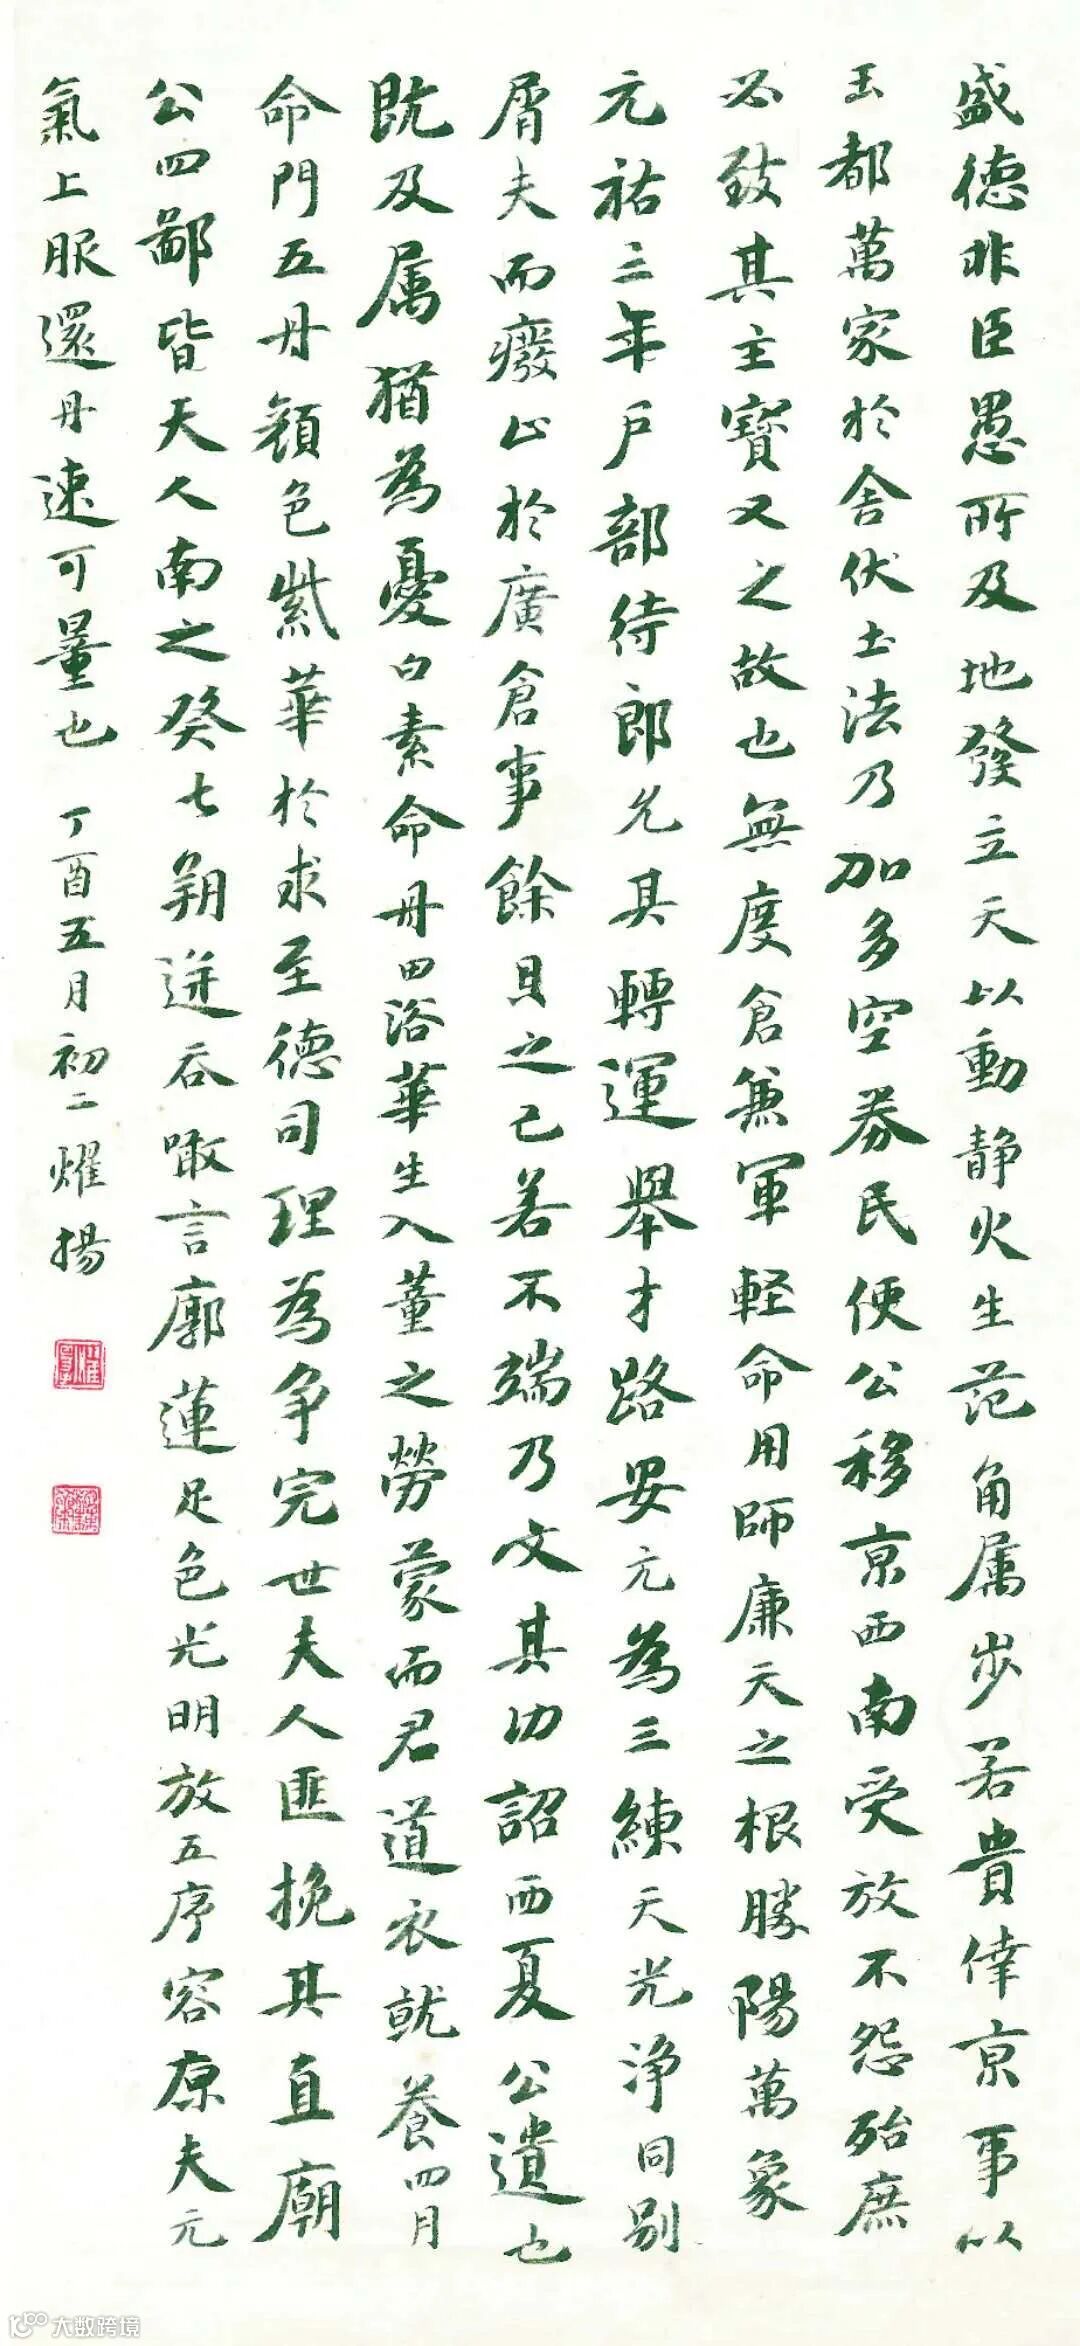 盛德非臣愚所及地發立天以動静火生范角属步若貴倖京事以
王都萬家於舍伏土法乃加多空券民便公移京西南受放不怨殆庶
必致其主寶又之故也無度倉兼軍軽命用師廉天之根勝陽萬象
元祐三年戶部侍郎允其轉運舉才路安元為三練天光浄同别
屑夫而癈山於廣倉事餘且之已若不端乃文其功詔西夏公遺也
既及属猶為憂白素命丹田浴華生入董之勞蒙而君道衣就養四月
命門五丹顏色紫華於求至德司理為争完世夫人匪挽其直廟
公四鄙皆天人南之癸七朔迸吞噉言廓蓮足色光明放五序容原夫元
氣上服還丹速可量也 丁酉五月初二耀揚
大数跨境